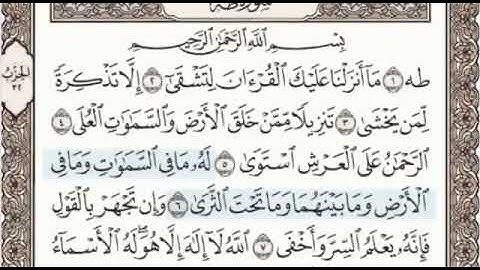 سورة طه
بِسْمِ ٱللَّهِ ٱلرَّحْمَٰنِ ٱلرَّحِيمِ
طه ١ مَآ أَنزَلْنَا عَلَيْكَ ٱلْقُرْءَانَ لِتَشْقَىٰٓ ٢ إِلَّا تَذْكِرَةً
لِّمَن يَخْشَىٰ ٣ تَنزِيلًا مِّمَّنْ خَلَقَ ٱلْأَرْضَ وَٱلسَّمَٰوَٰتِ ٱلْعُلَى ٤
ٱلرَّحْمَٰنُ عَلَى ٱلْعَرْشِ ٱسْتَوَىٰ ٥ لَهُۥ مَا فِى ٱلسَّمَٰوَٰتِ وَمَا فِى
ٱلْأَرْضِ وَمَا بَيْنَهُمَا وَمَا تَحْتَ ٱلثَّرَىٰ ٦ وَإِن تَجْهَرْ بِٱلْقَوْلِ
فَإِنَّهُۥ يَعْلَمُ ٱلسِّرَّ وَأَخْفَى ٧ ٱللَّهُ لَآ إِلَٰهَ إِلَّا هُوَ لَهُ ٱلْأَسْمَآءُ
الحزب
٣٢